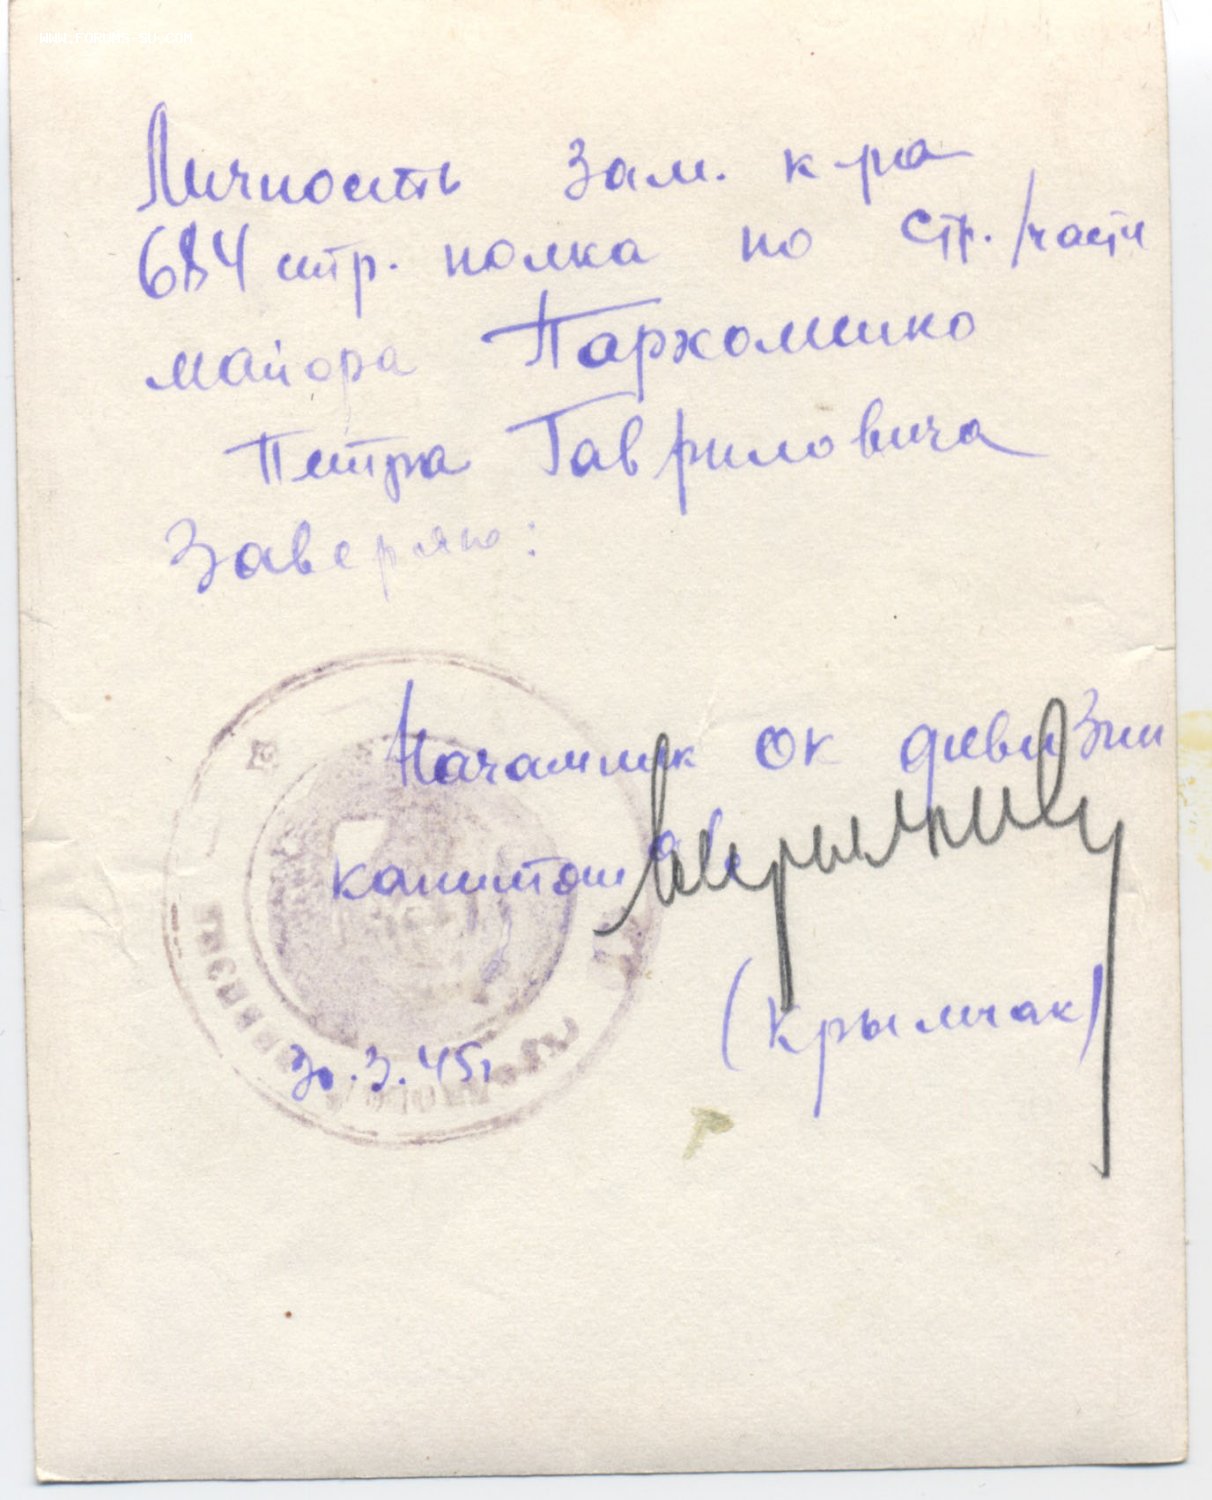 WWW.FORUMS-SU.COM
Личность зам. к-ра
684 стр. полка по стр./части
майора Пархоменко
Петра Гавриловича
Заверяю:
Начальник ОК дивизии
капитан
(Крымчак)
30.3.45г